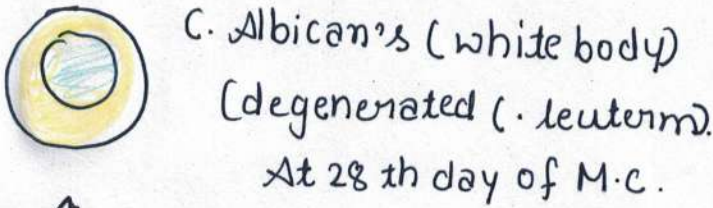 C. Albican's (white body)
(degenerated (. leuterm).
At 28 th day of M.C.